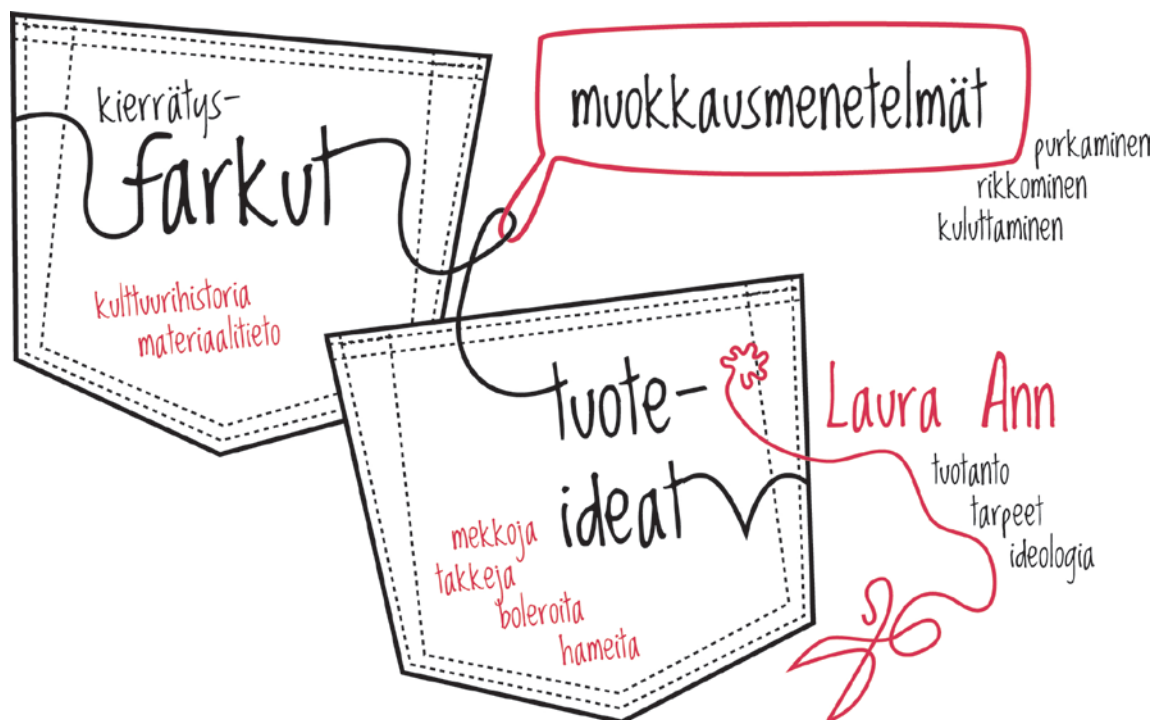 kierrätys-
farkut
kulttuurihistoria
materiaalitieto
muokkausmenetelmät
purkaminen
rikkominen
kuluttaminen
tuote-
ideat
mekkoja
takkeja
boleroita
hameita
Laura Ann
tuotanto
tarpeet
ideologia